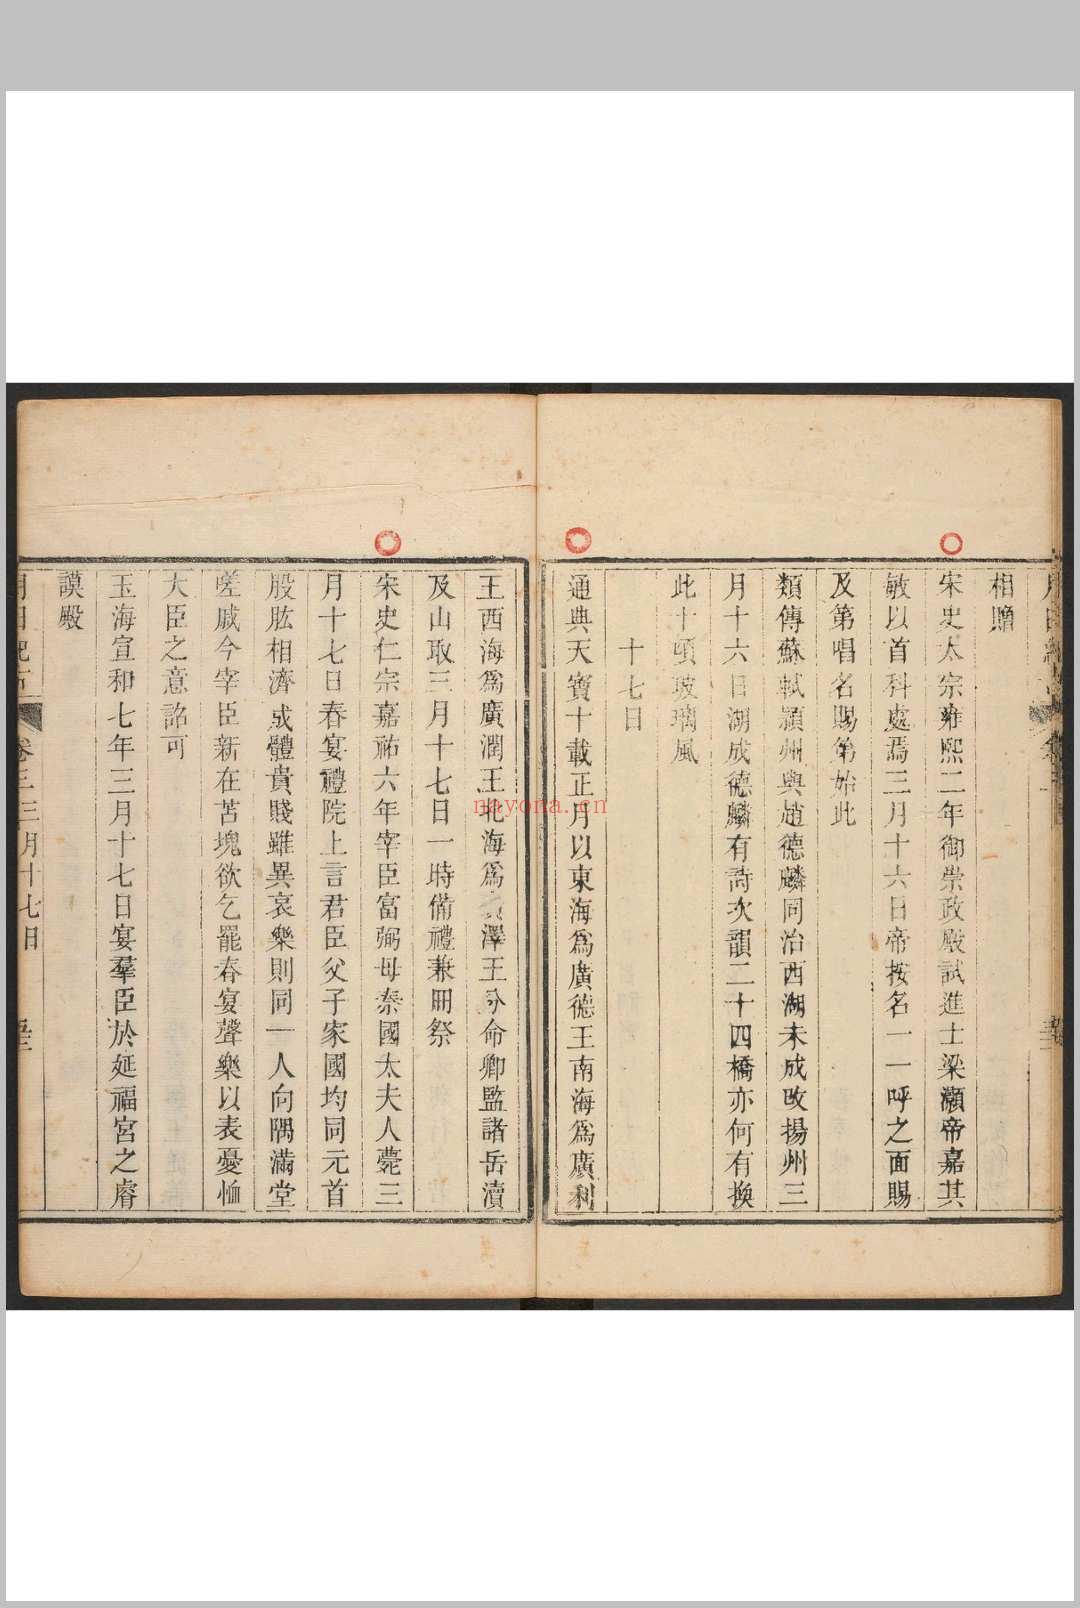 相贈
宋史太宗雍熙二年御崇政殿試進士梁灝帝嘉其
敏以首科處焉三月十六日帝按名一一呼之面賜
及第唱名賜第始此
類傳蘇軾潁州與趙德麟同治西湖未成改揚州三
月十六日湖成德麟有詩次韻二十四橋亦何有換
此十頃玻璃風
十七日
通典天寶十載正月以東海爲廣德王南海爲廣利
王西海爲廣潤王北海爲澤王分命卿監諸岳瀆
及山取三月十七日一時備禮兼冊祭
宋史仁宗嘉祐六年宰臣富弼母秦國太夫人薨三
月十七日春宴禮院上言君臣父子家國均同元首
股肱相濟成體貴賤雖異哀樂則同一人向隅滿堂
嗟戚今宰臣新在苫塊欲乞罷春宴聲樂以表憂恤
大臣之意詔可
玉海宣和七年三月十七日宴羣臣於延福宮之睿
謨殿
月日紀古 卷三三月十七日
nayona.cn